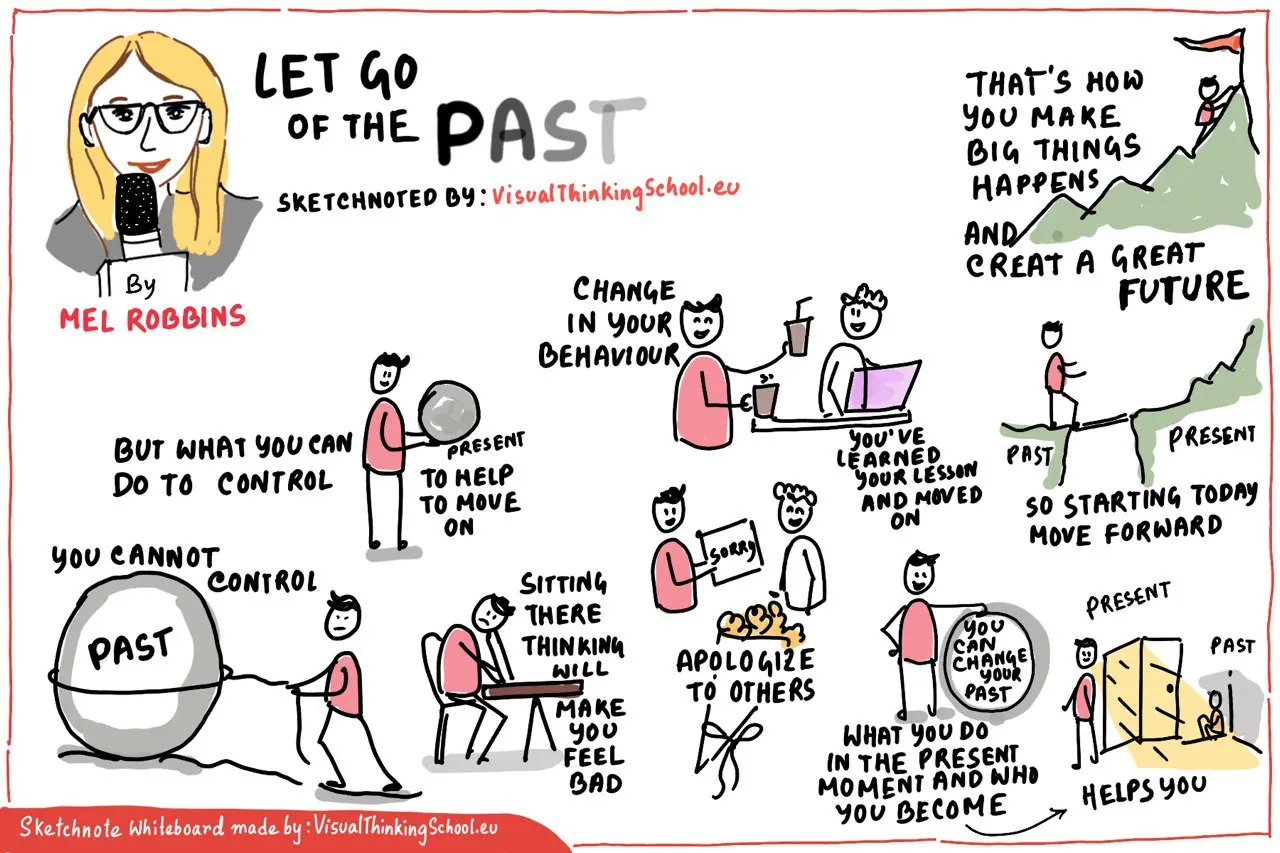 LET GO
OF THE PAST
SKETCHNOTED BY: VISUALTHINKINGSCHOOL.eu
By
MEL ROBBINS
YOU CANNOT
CONTROL
PAST
BUT WHAT YOU CAN
DO TO CONTROL
PRESENT
TO HELP
TO MOVE
ON
SITTING
THERE
THINKING
WILL
MAKE
YOU
FEEL
BAD
CHANGE
IN YOUR
BEHAVIOUR
YOU'VE
LEARNED
YOUR LESSON
AND MOVED
ON
SORRY
APOLOGIZE
TO OTHERS
YOU
CAN
CHANGE
YOUR
PAST
WHAT YOU DO
IN THE PRESENT
MOMENT AND WHO
YOU BECOME
PRESENT
PAST
HELPS YOU
PAST
PRESENT
SO STARTING TODAY
MOVE FORWARD
THAT'S HOW
YOU MAKE
BIG THINGS
HAPPENS
AND
CREAT A GREAT
FUTURE
Sketchnote Whiteboard made by: VISUALTHINKINGSCHOOL.eu